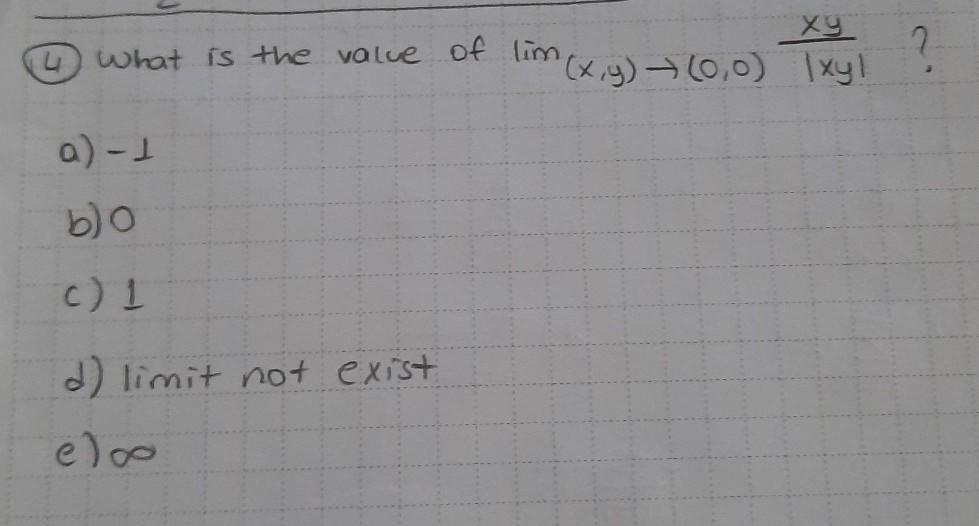 4 What is the value of lim (x,y)→(0,0) xy/|xy| ?
a) -1
b) 0
c) 1
d) limit not exist
e) ∞